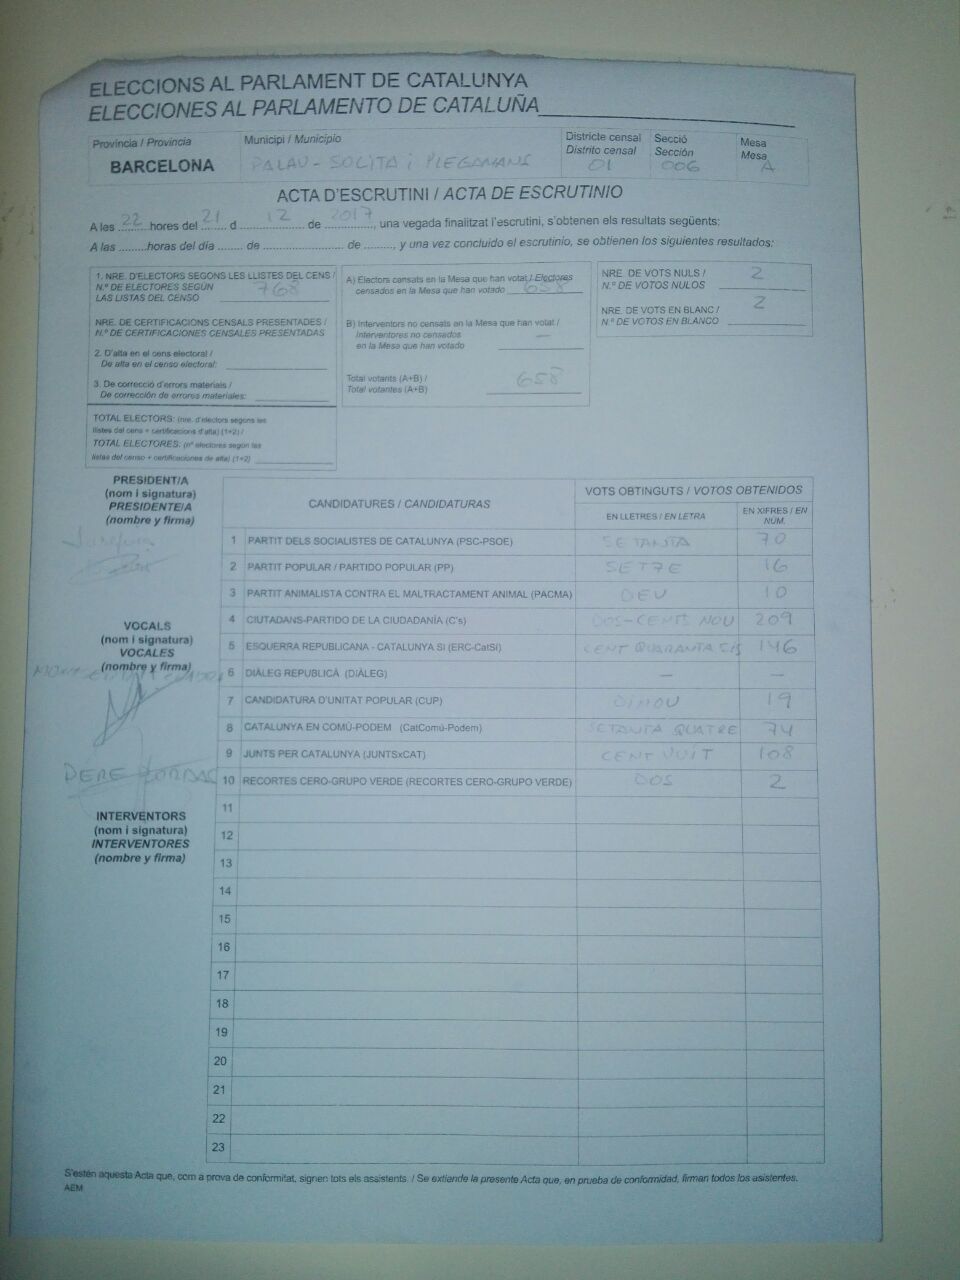 ELECCIONS AL PARLAMENT DE CATALUNYA
ELECCIONES AL PARLAMENTO DE CATALUÑA
Província / Provincia
BARCELONA
Municipi / Municipio
PALAU-SOLITA i PLEGAMANS
Districte censal
Distrito censal
01
Secció
Sección
006
Mesa
Mesa
A
ACTA D'ESCRUTINI / ACTA DE ESCRUTINIO
A les 22 hores del 21 d 12 de 2017, una vegada finalitzat l'escrutini, s'obtenen els resultats següents:
A las .........horas del día ....... de ........................ de ........, y una vez concluido el escrutinio, se obtienen los siguientes resultados:
1. NRE. D'ELECTORS SEGONS LES LLISTES DEL CENS /
N.º DE ELECTORES SEGÚN
LAS LISTAS DEL CENSO
768
NRE. DE CERTIFICACIONS CENSALS PRESENTADES /
N.º DE CERTIFICACIONES CENSALES PRESENTADAS
2. D'alta en el cens electoral /
De alta en el censo electoral:
3. De correcció d'errors materials /
De corrección de errores materiales:
TOTAL ELECTORS: (nre. d'electors segons les
llistes del cens + certificacions d'alta) (1+2) /
TOTAL ELECTORES: (nº electores según las
listas del censo + certificaciones de alta) (1+2)
A) Electors censats en la Mesa que han votat / Electores
censados en la Mesa que han votado 658
B) Interventors no censats en la Mesa que han votat /
Interventores no censados
en la Mesa que han votado —
Total votants (A+B) /
Total votantes (A+B) 658
NRE. DE VOTS NULS /
N.º DE VOTOS NULOS 2
NRE. DE VOTS EN BLANC /
N.º DE VOTOS EN BLANCO 2
PRESIDENT/A
(nom i signatura)
PRESIDENTE/A
(nombre y firma)
VOCALS
(nom i signatura)
VOCALES
(nombre y firma)
PERE
INTERVENTORS
(nom i signatura)
INTERVENTORES
(nombre y firma)
CANDIDATURES / CANDIDATURAS
VOTS OBTINGUTS / VOTOS OBTENIDOS
EN LLETRES / EN LETRA
EN XIFRES / EN NÚM.
1 PARTIT DELS SOCIALISTES DE CATALUNYA (PSC-PSOE) SETANTA 70
2 PARTIT POPULAR / PARTIDO POPULAR (PP) SETZE 16
3 PARTIT ANIMALISTA CONTRA EL MALTRACTAMENT ANIMAL (PACMA) DEU 10
4 CIUTADANS-PARTIDO DE LA CIUDADANÍA (C's) DOS-CENTS NOU 209
5 ESQUERRA REPUBLICANA - CATALUNYA SI (ERC-CatSí) CENT QUARANTA SIS 146
6 DIÀLEG REPUBLICÀ (DIÀLEG) — —
7 CANDIDATURA D'UNITAT POPULAR (CUP) DINOU 19
8 CATALUNYA EN COMÚ-PODEM (CatComú-Podem) SETANTA QUATRE 74
9 JUNTS PER CATALUNYA (JUNTSxCAT) CENT VUIT 108
10 RECORTES CERO-GRUPO VERDE (RECORTES CERO-GRUPO VERDE) DOS 2
11
12
13
14
15
16
17
18
19
20
21
22
23
S'estén aquesta Acta que, com a prova de conformitat, signen tots els assistents. / Se extiende la presente Acta que, en prueba de conformidad, firman todos los asistentes.
AEM